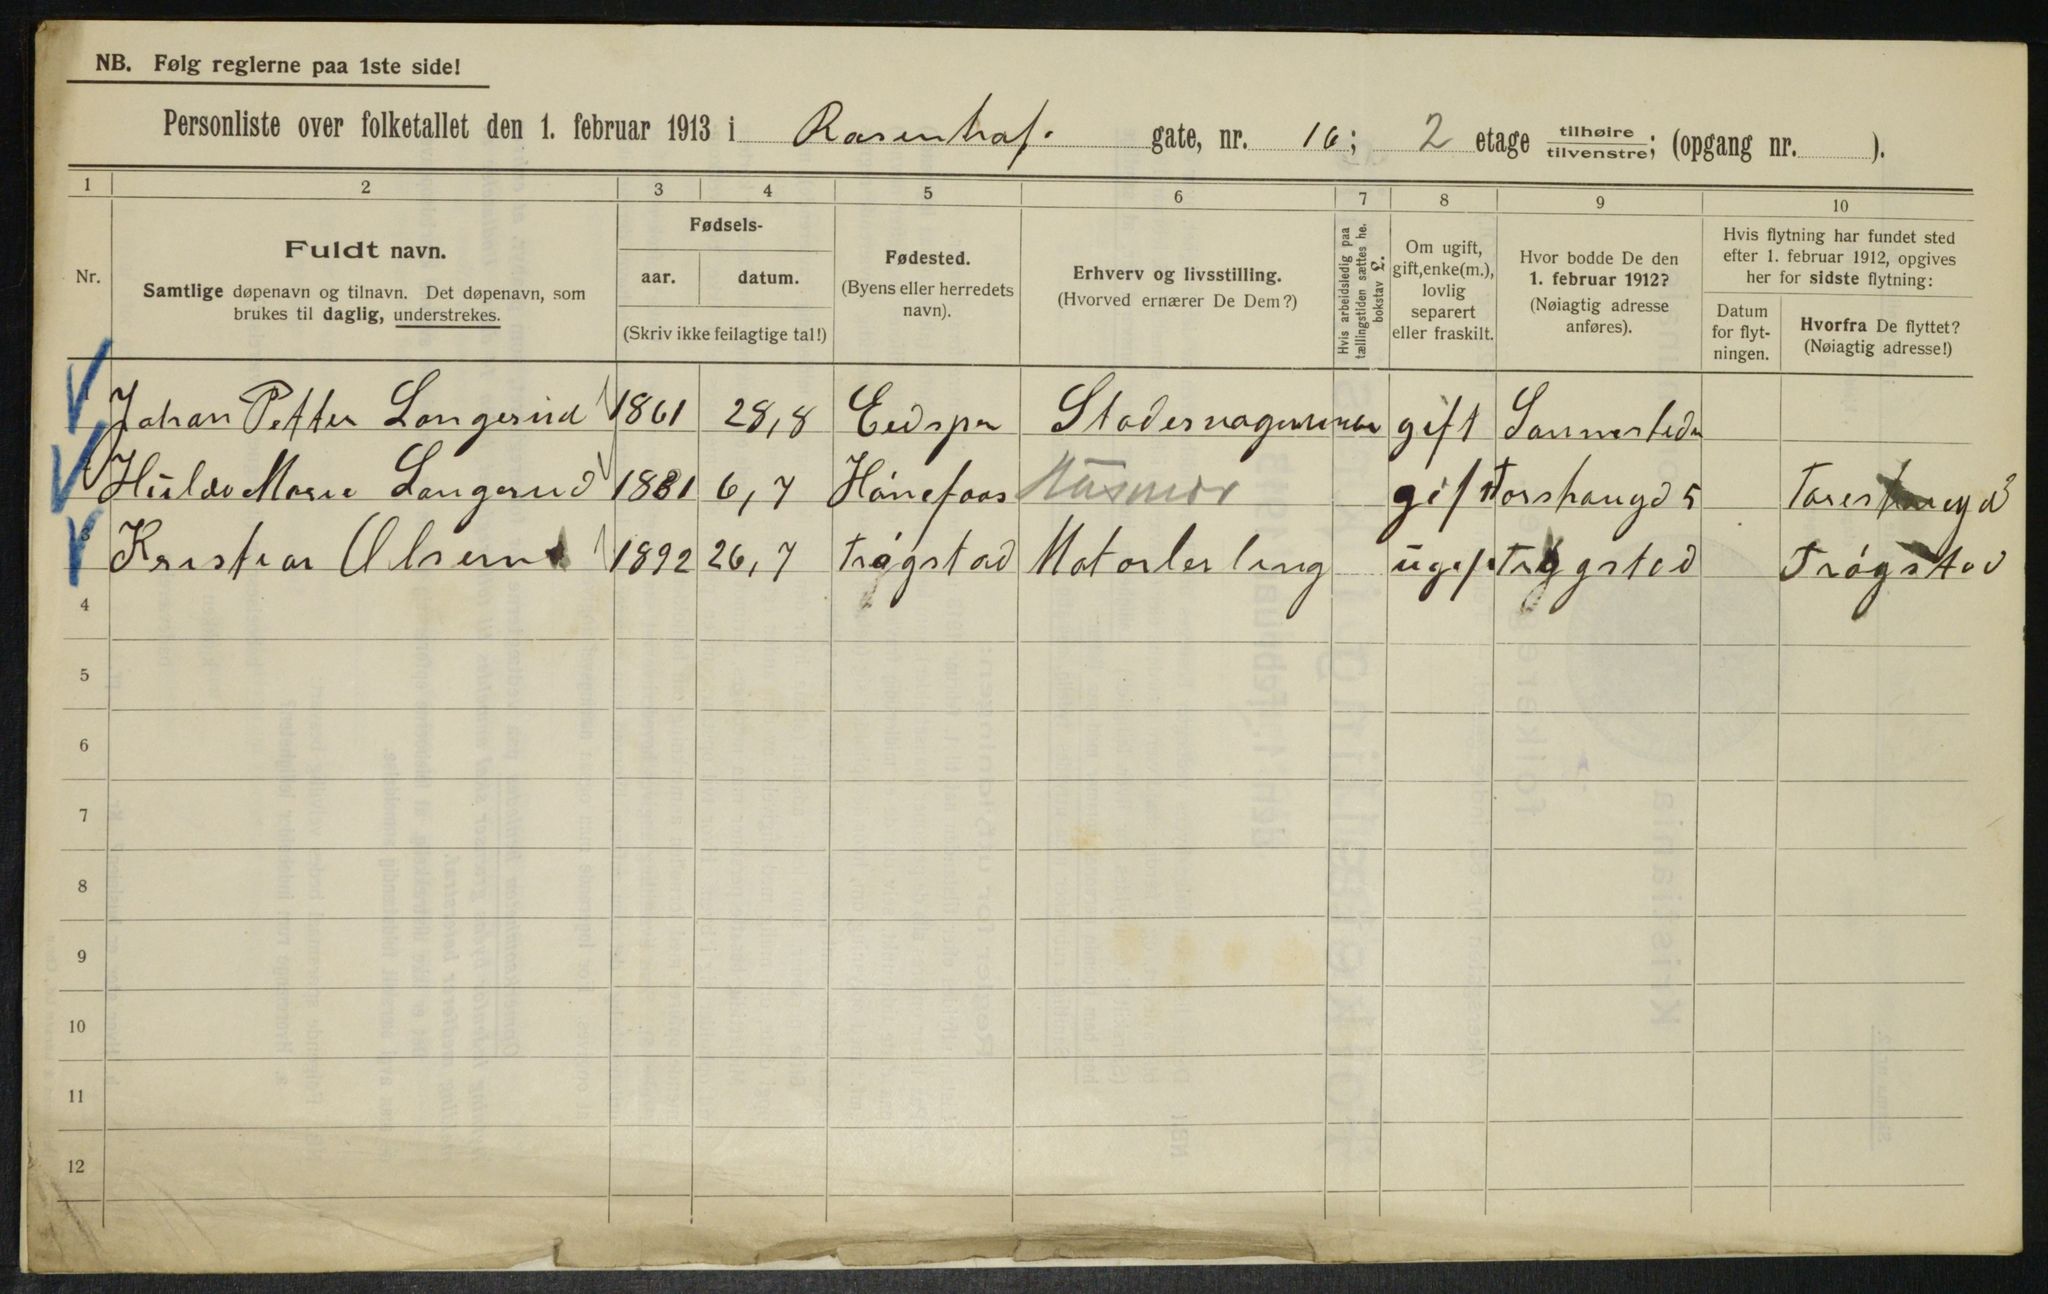 NB. Følg reglerne paa 1ste side!
Personliste over folketallet den 1. februar 1913 i Rosenhof. gate, nr. 16; 2 etage tilhøire / tilvenstre; (opgang nr. ).
1 2 3 4 5 6 7 8 9 10
Nr.
Fuldt navn.
Samtlige døpenavn og tilnavn. Det døpenavn, som
brukes til daglig, understrekes.
Fødsels-
aar. datum.
(Skriv ikke feilagtige tal!)
Fødested.
(Byens eller herredets
navn).
Erhverv og livsstilling.
(Hvorved ernærer De Dem?)
Hvis arbeidsledig paa
tællingstiden sættes he.
bokstav L.
Om ugift,
gift, enke(m.),
lovlig
separert
eller fraskilt.
Hvor bodde De den
1. februar 1912?
(Nøiagtig adresse
anføres).
Hvis flytning har fundet sted
efter 1. februar 1912, opgives
her for sidste flytning:
Datum
for flyt-
ningen.
Hvorfra De flyttet?
(Nøiagtig adresse!)
Johan Petter Langerud 1861 28,8 gift
Marie Langerud 1881 6,7 Hönefoos Husmor gift Torshougd 5
3 Kristian Olsen 1892 26,7 Trøgstad ugift Trøgstad Trøgstad
4
5
6
7
8
9
10
11
12